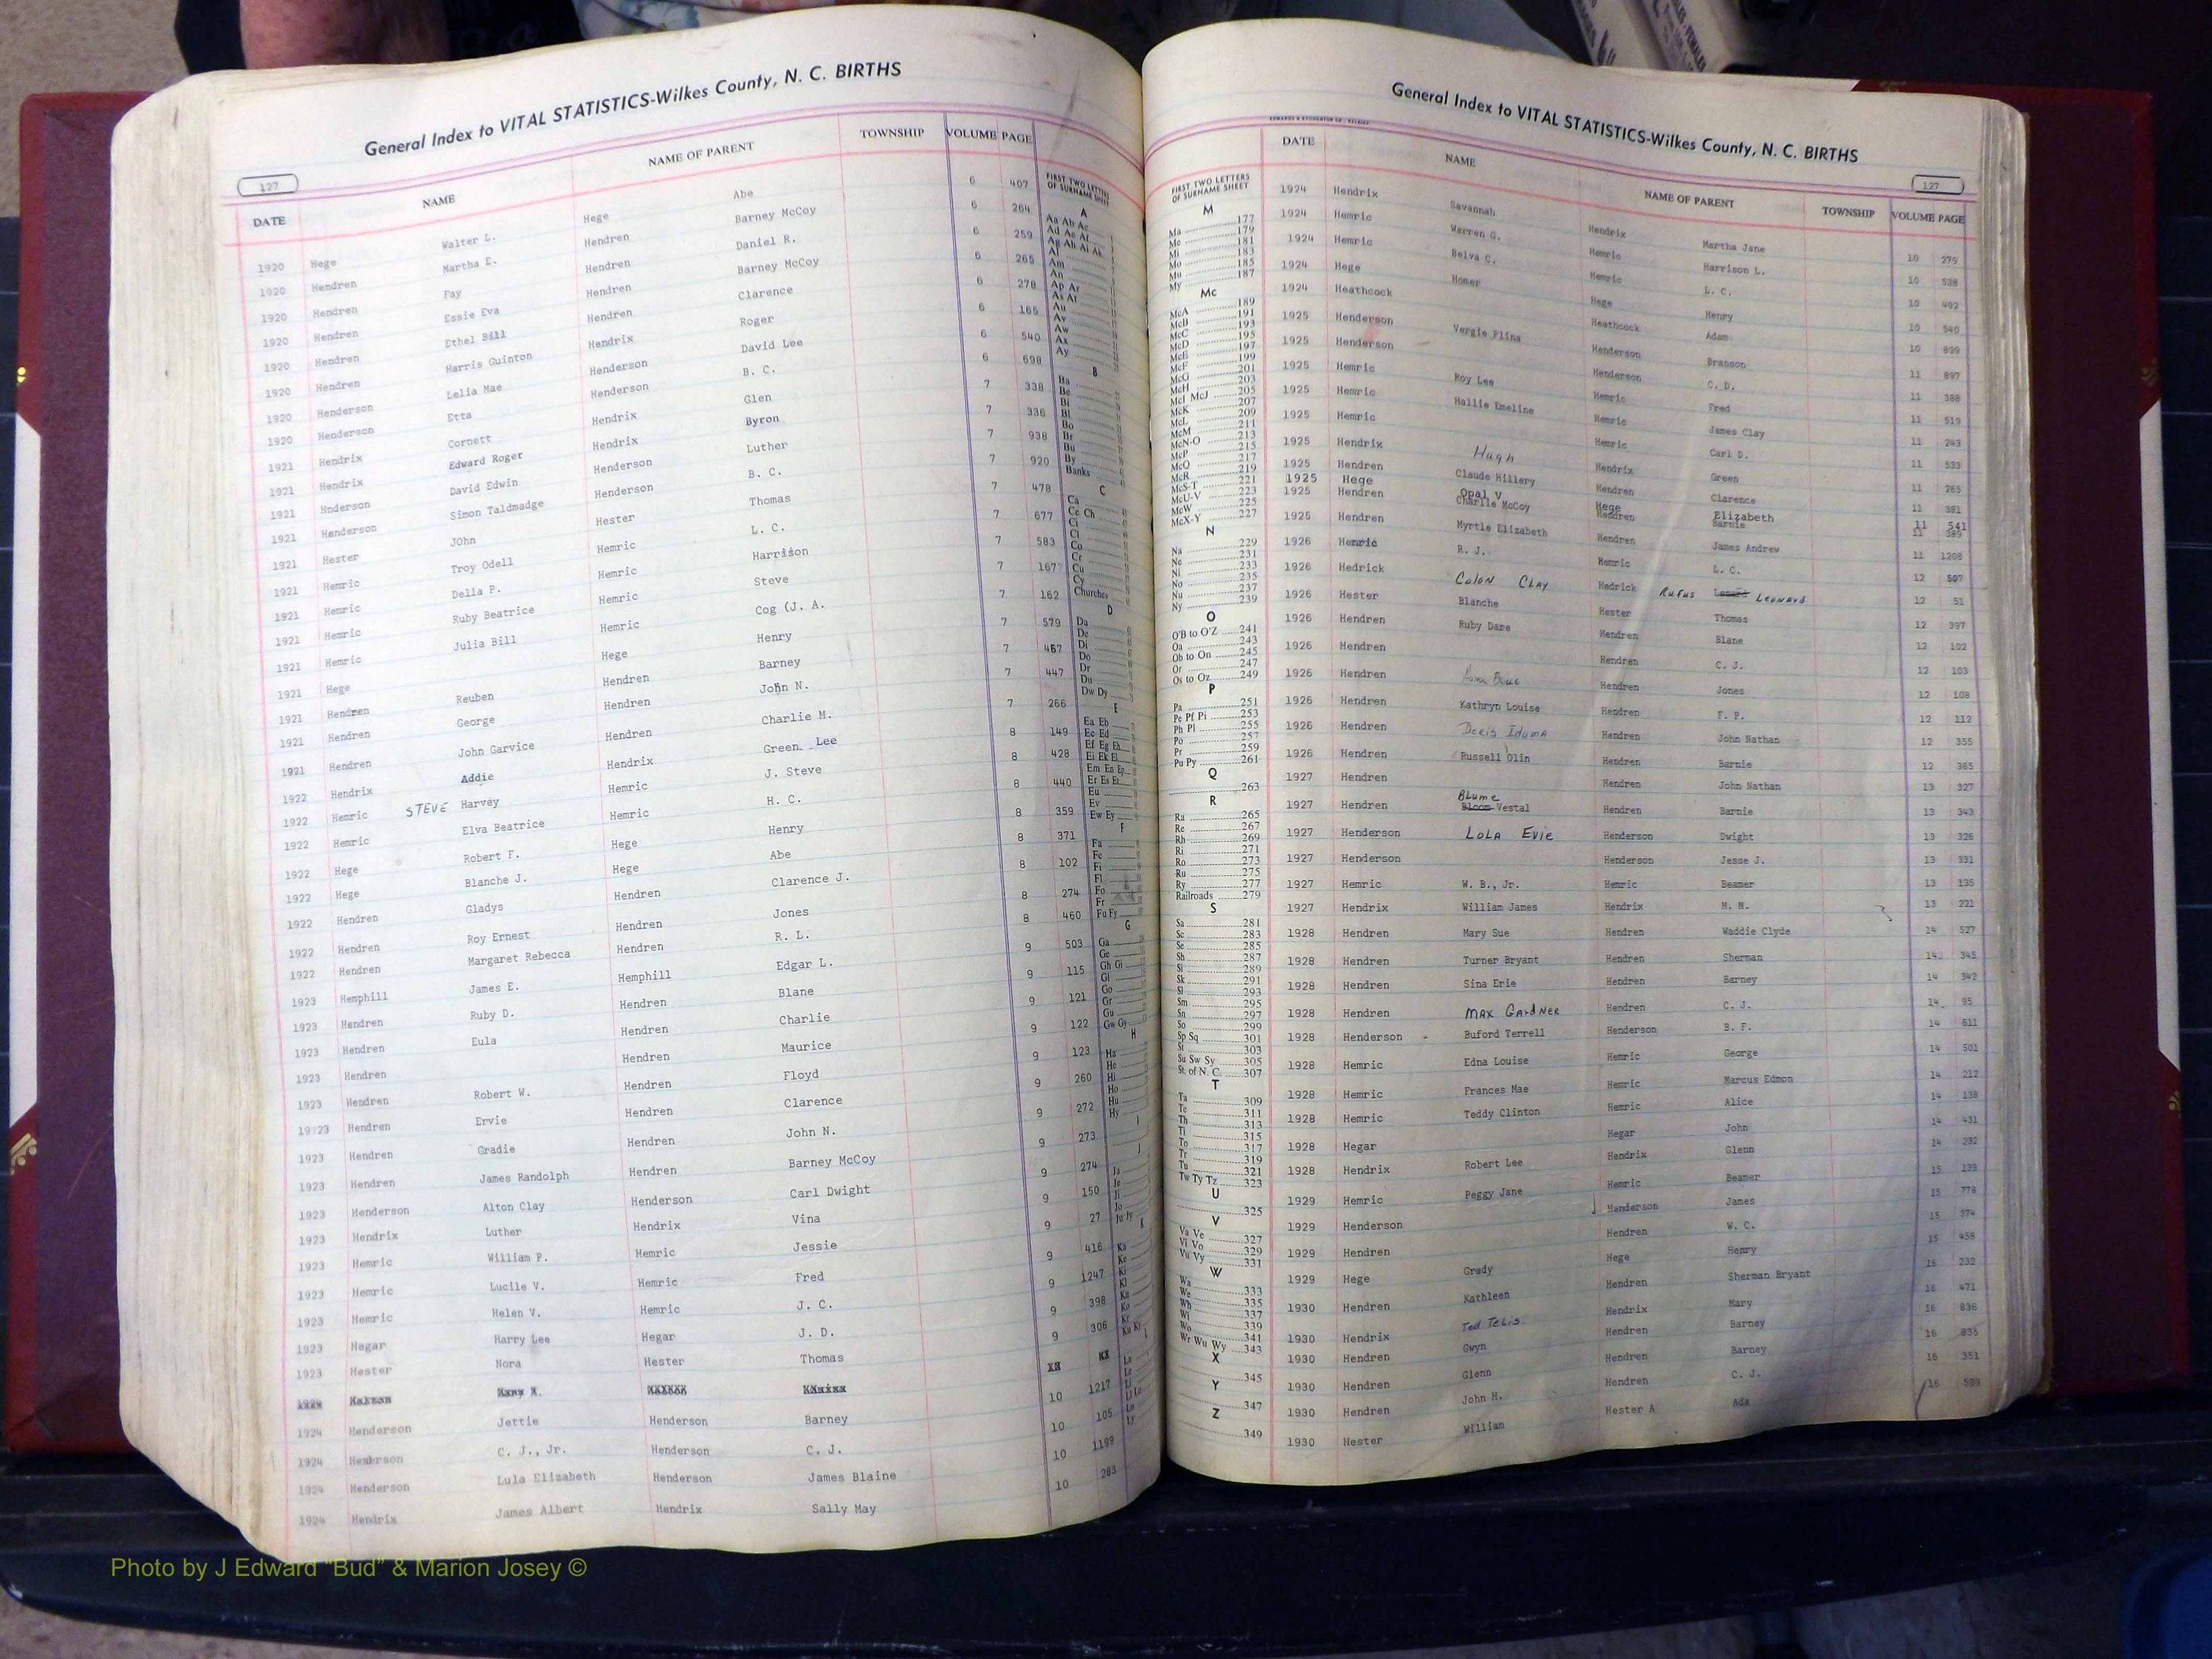 General Index to VITAL STATISTICS-Wilkes County, N. C. BIRTHS
127
DATE NAME NAME OF PARENT TOWNSHIP VOLUME PAGE
1920 Hege Walter L. Hege Abe 6 407
1920 Hendren Martha E. Hendren Barney McCoy 6 264
1920 Hendren Fay Hendren Daniel R. 6 259
1920 Hendren Essie Eva Hendren Barney McCoy 6 265
1920 Hendren Ethel Bill Hendren Clarence 6 278
1920 Hendren Harris Guinton Hendrix Roger 6 165
1920 Henderson Lelia Mae Henderson David Lee 6 540
1920 Henderson Etta Henderson B. C. 6 698
1921 Hendrix Cornett Hendrix Glen 7 338
1921 Hendrix Edward Roger Hendrix Byron 7 336
1921 Hnderson David Edwin Henderson Luther 7 938
1921 Henderson Simon Taldmadge Henderson B. C. 7 920
1921 Hester JOhn Hester Thomas 7 478
1921 Hemric Troy Odell Hemric L. C. 7 677
1921 Hemric Della P. Hemric Harrison 7 583
1921 Hemric Ruby Beatrice Hemric Steve 7 167
1921 Hemric Julia Bill Hemric Cog (J. A. 7 162
1921 Hege Hege Henry 7 579
1921 Hendren Reuben Hendren Barney 7 467
1921 Hendren George Hendren John N. 7 447
1921 Hendren John Garvice Hendren Charlie M. 7 266
1922 Hendrix Addie Hendrix Green Lee 8 149
1922 Hemric STEVE Harvey Hemric J. Steve 8 428
1922 Hemric Elva Beatrice Hemric H. C. 8 440
1922 Hege Robert F. Hege Henry 8 359
1922 Hege Blanche J. Hege Abe 8 371
1922 Hendren Gladys Hendren Clarence J. 8 102
1922 Hendren Roy Ernest Hendren Jones 8 274
1922 Hendren Margaret Rebecca Hendren R. L. 8 460
1923 Hemphill James E. Hemphill Edgar L. 9 503
1923 Hendren Ruby D. Hendren Blane 9 115
1923 Hendren Eula Hendren Charlie 9 121
1923 Hendren Hendren Maurice 9 122
1923 Hendren Robert W. Hendren Floyd 9 123
1923 Hendren Ervie Hendren Clarence 9 260
1923 Hendren Gradie Hendren John N. 9 272
1923 Hendren James Randolph Hendren Barney McCoy 9 273
1923 Henderson Alton Clay Henderson Carl Dwight 9 274
1923 Hendrix Luther Hendrix Vina 9 150
1923 Hemric William P. Hemric Jessie 9 27
1923 Hemric Lucile V. Hemric Fred 9 416
1923 Hemric Helen V. Hemric J. C. 9 1247
1923 Hegar Harry Lee Hegar J. D. 9 398
1923 Hester Nora Hester Thomas 9 306
1924 Henderson Jettie Henderson Barney 10 1217
1924 Henderson C. J., Jr. Henderson C. J. 10 105
1924 Henderson Lula Elizabeth Henderson James Blaine 10 1199
1924 Hendrix James Albert Hendrix Sally May 10 283
FIRST TWO LETTERS OF SURNAME SHEET
A
Aa Ab Ac
Ad Ae Af
Ag Ah Ai Ak
Al
Am
An
Ap Ar
As At
Au
Av
Aw
Ax
Ay
B
Ba
Be
Bi
Bl
Bo
Br
Bu
By
Banks
C
Ca
Ce Ch
Ci
Cl
Co
Cr
Cu
Cy
Churches
D
Da
De
Di
Do
Dr
Du
Dw Dy
E
Ea Eb
Ec Ed
Ef Eg Eh
Ei Ek El
Em En Ep
Er Es Et
Eu
Ev
Ew Ey
F
Fa
Fe
Fi
Fl
Fo
Fr
Fu Fy
G
Ga
Ge
Gh Gi
Gl
Go
Gr
Gu
Gw Gy
H
Ha
He
Hi
Ho
Hu
Hy
I
J
Ja
Je
Ji
Jo
Ju Jy
K
Ka
Ke
Ki
Kl
Kn
Ko
Kr
Ku Ky
L
La
Le
Li
Ll Lo
Lu
Ly
General Index to VITAL STATISTICS-Wilkes County, N. C. BIRTHS
127
FIRST TWO LETTERS OF SURNAME SHEET
M
Ma 177
Me 179
Mi 181
Mo 183
Mu 185
My 187
Mc
McA 189
McB 191
McC 193
McD 195
McE 197
McF 199
McG 201
McH 203
McI McJ 205
McK 207
McL 209
McM 211
McN-O 213
McP 215
McQ 217
McR 219
McS-T 221
McU-V 223
McW 225
McX-Y 227
N
Na 229
Ne 231
Ni 233
No 235
Nu 237
Ny 239
O
O'B to O'Z 241
Oa 243
Ob to On 245
Or 247
Os to Oz 249
P
Pa 251
Pe Pf Pi 253
Ph Pl 255
Po 257
Pr 259
Pu Py 261
Q
263
R
Ra 265
Re 267
Rh 269
Ri 271
Ro 273
Ru 275
Ry 277
Railroads 279
S
Sa 281
Sc 283
Se 285
Sh 287
Si 289
Sk 291
Sl 293
Sm 295
Sn 297
So 299
Sp Sq 301
St 303
Su Sw Sy 305
St. of N. C. 307
T
Ta 309
Te 311
Th 313
Ti 315
To 317
Tr 319
Tu 321
Tw Ty Tz 323
U
325
V
Va Ve 327
Vi Vo 329
Vu Vy 331
W
Wa 333
We 335
Wh 337
Wi 339
Wo 341
Wr Wu Wy 343
X
345
Y
347
Z
349
DATE NAME NAME OF PARENT TOWNSHIP VOLUME PAGE
1924 Hendrix Savannah Hendrix Martha Jane 10 279
1924 Hemric Warren G. Hemric Harrison L. 10 538
1924 Hemric Belva C. Hemric L. C. 10 492
1924 Hege Homer Hege Henry 10 540
1924 Heathcock Heathcock Adam 10 899
1925 Henderson Vergie Plina Henderson Branson 11 897
1925 Henderson Henderson C. D. 11 388
1925 Hemric Roy Lee Hemric Fred 11 519
1925 Hemric Hallie Emeline Hemric James Clay 11 243
1925 Hemric Hemric Carl D. 11 533
1925 Hendrix Hugh Hendrix Green 11 265
1925 Hendren Claude Hillery Hendren Clarence 11 381
1925 Hege Opal V Hege Elizabeth 11 541
1925 Hendren Charlie McCoy Hendren Barnie 11 389
1925 Hendren Myrtle Elizabeth Hendren James Andrew 11 1208
1926 Hemric R. J. Hemric L. C. 12 507
1926 Hedrick Colon CLAY Hedrick Rufus Leonard 12 51
1926 Hester Blanche Hester Thomas 12 397
1926 Hendren Ruby Dare Hendren Blane 12 102
1926 Hendren Hendren C. J. 12 103
1926 Hendren Hendren Jones 12 108
1926 Hendren Kathryn Louise Hendren F. P. 12 112
1926 Hendren Doris Iduma Hendren John Nathan 12 355
1926 Hendren Russell Olin Hendren Barnie 12 365
1927 Hendren Hendren John Nathan 13 327
1927 Hendren Blume Bloom Vestal Hendren Barnie 13 343
1927 Henderson LOLA EViE Henderson Dwight 13 326
1927 Henderson Henderson Jesse J. 13 331
1927 Hemric W. B., Jr. Hemric Beamer 13 135
1927 Hendrix William James Hendrix M. M. 13 221
1928 Hendren Mary Sue Hendren Waddie Clyde 14 527
1928 Hendren Turner Bryant Hendren Sherman 14 345
1928 Hendren Sina Erie Hendren Barney 14 342
1928 Hendren MAX GArdNER Hendren C. J. 14 95
1928 Henderson - Buford Terrell Henderson B. F. 14 611
1928 Hemric Edna Louise Hemric George 14 501
1928 Hemric Frances Mae Hemric Marcus Edmon 14 212
1928 Hemric Teddy Clinton Hemric Alice 14 138
1928 Hegar Hegar John 14 431
1928 Hendrix Robert Lee Hendrix Glenn 14 232
1929 Hemric Peggy Jane Hemric Beamer 15 139
1929 Henderson Henderson James 15 778
1929 Hendren Hendren W. C. 15 374
1929 Hege Grady Hege Henry 15 458
1930 Hendren Kathleen Hendren Sherman Bryant 16 232
1930 Hendrix Ted Hendrix Mary 16 471
1930 Hendren Gwyn Hendren Barney 16 836
1930 Hendren Glenn Hendren Barney 16 835
1930 Hendren John H. Hendren C. J. 16 351
1930 Hester William Hester A Ada 16 599
Photo by J Edward "Bud" & Marion Josey ©